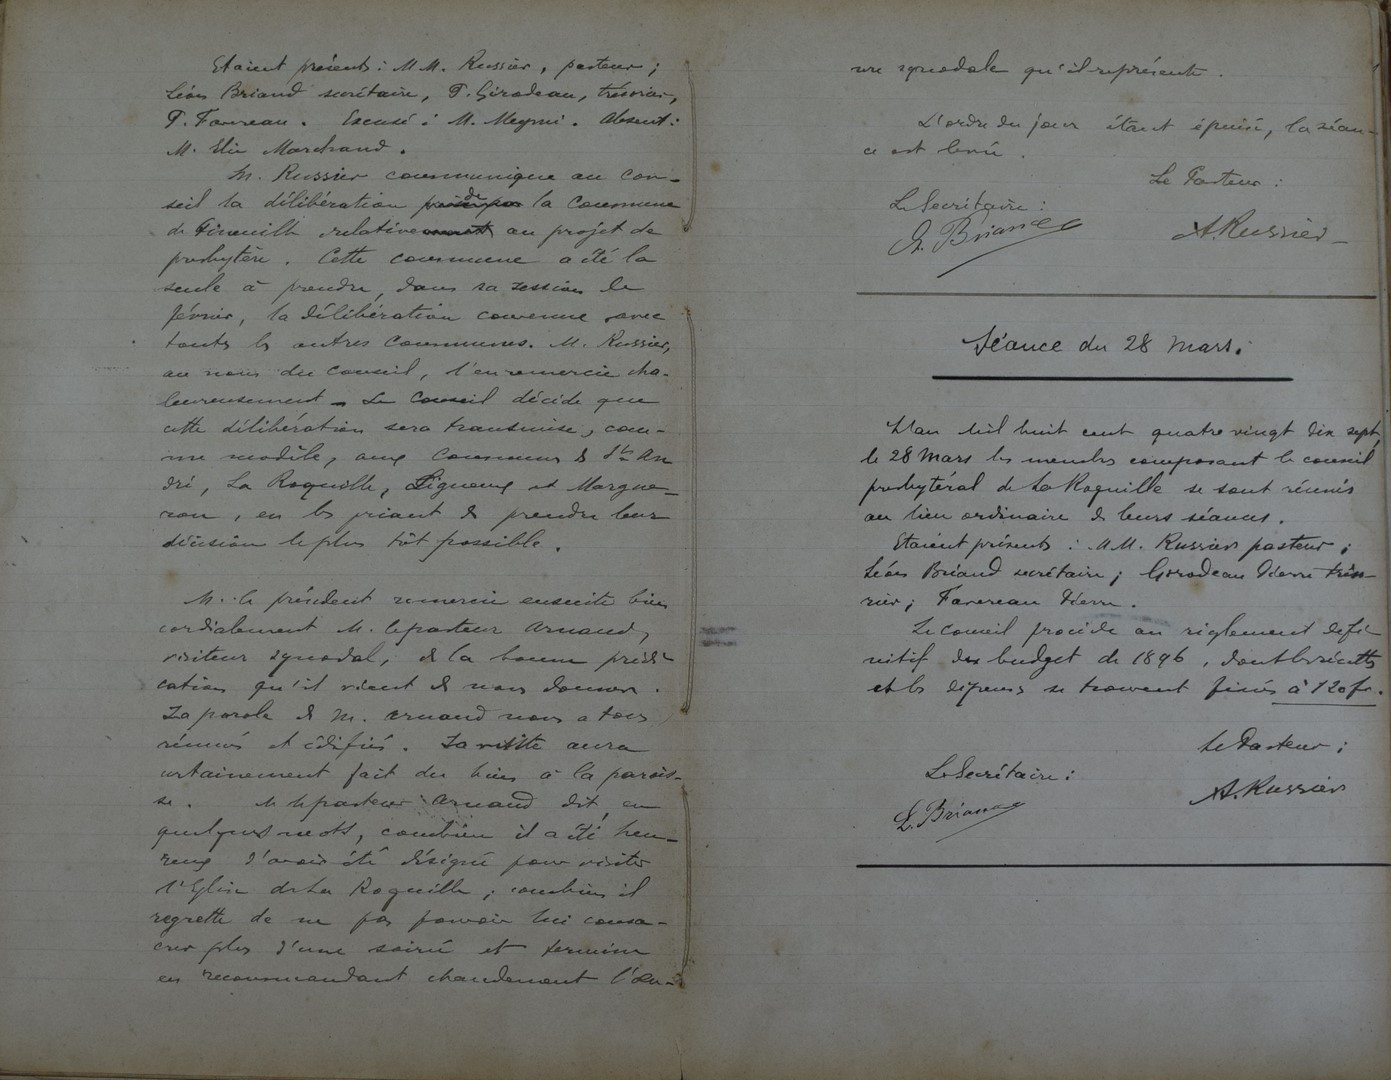 Etaient présents : MM. Russier, pasteur ;
Léon Briand secrétaire, P. Girodeau, trésorier,
P. Favereau. Excusé : M. Meymi. Absent :
M. Elie Marchand.
M. Russier communique au con-
seil la délibération de la commune
de Pineuilh relative au projet de
presbytère. Cette commune a été la
seule à prendre, dans sa session de
février, la délibération convenue avec
toutes les autres communes. M. Russier,
au nom du conseil, l'en remercie cha-
leureusement - Le Conseil décide que
cette délibération sera transmise, com-
me modèle, aux communes de St An
dré, La Roquille, Ligueux et Margue-
ron, en les priant de prendre leur
décision le plus tôt possible.
M. le président remercie ensuite bien
cordialement M. le pasteur Arnaud,
visiteur synodal, de la bonne prédi-
cation qu'il vient de nous donner.
La parole de M. Arnaud nous a tous
réunis et édifiés. La visite aura
certainement fait du bien à la parois-
se. M. le pasteur Arnaud dit, en
quelques mots, combien il a été heu-
reux d'avoir été désigné pour visiter
l'Eglise de La Roquille ; combien il
regrette de ne pas pouvoir lui consa-
crer plus d'une soirée et termine
en recommandant chaudement l'œu-
vre synodale qu'il représente.
L'ordre du jour étant épuisé, la séan-
ce est levée.
Le Pasteur :
Le Secrétaire :
L. Briand
A. Russier
Séance du 28 Mars.
L'an Mil huit cent quatre vingt dix sept,
le 28 Mars les membres composant le conseil
presbytéral de La Roquille se sont réunis
au lieu ordinaire de leurs séances.
Etaient présents : MM. Russier pasteur ;
Léon Briand secrétaire ; Girodeau Pierre tréso-
rier ; Favereau Pierre.
Le Conseil procède au règlement défi-
nitif du budget de 1896, dont les recettes
et les dépenses se trouvent fixées à 120 fr.
Le Pasteur :
Le Secrétaire :
A. Russier
L. Briand